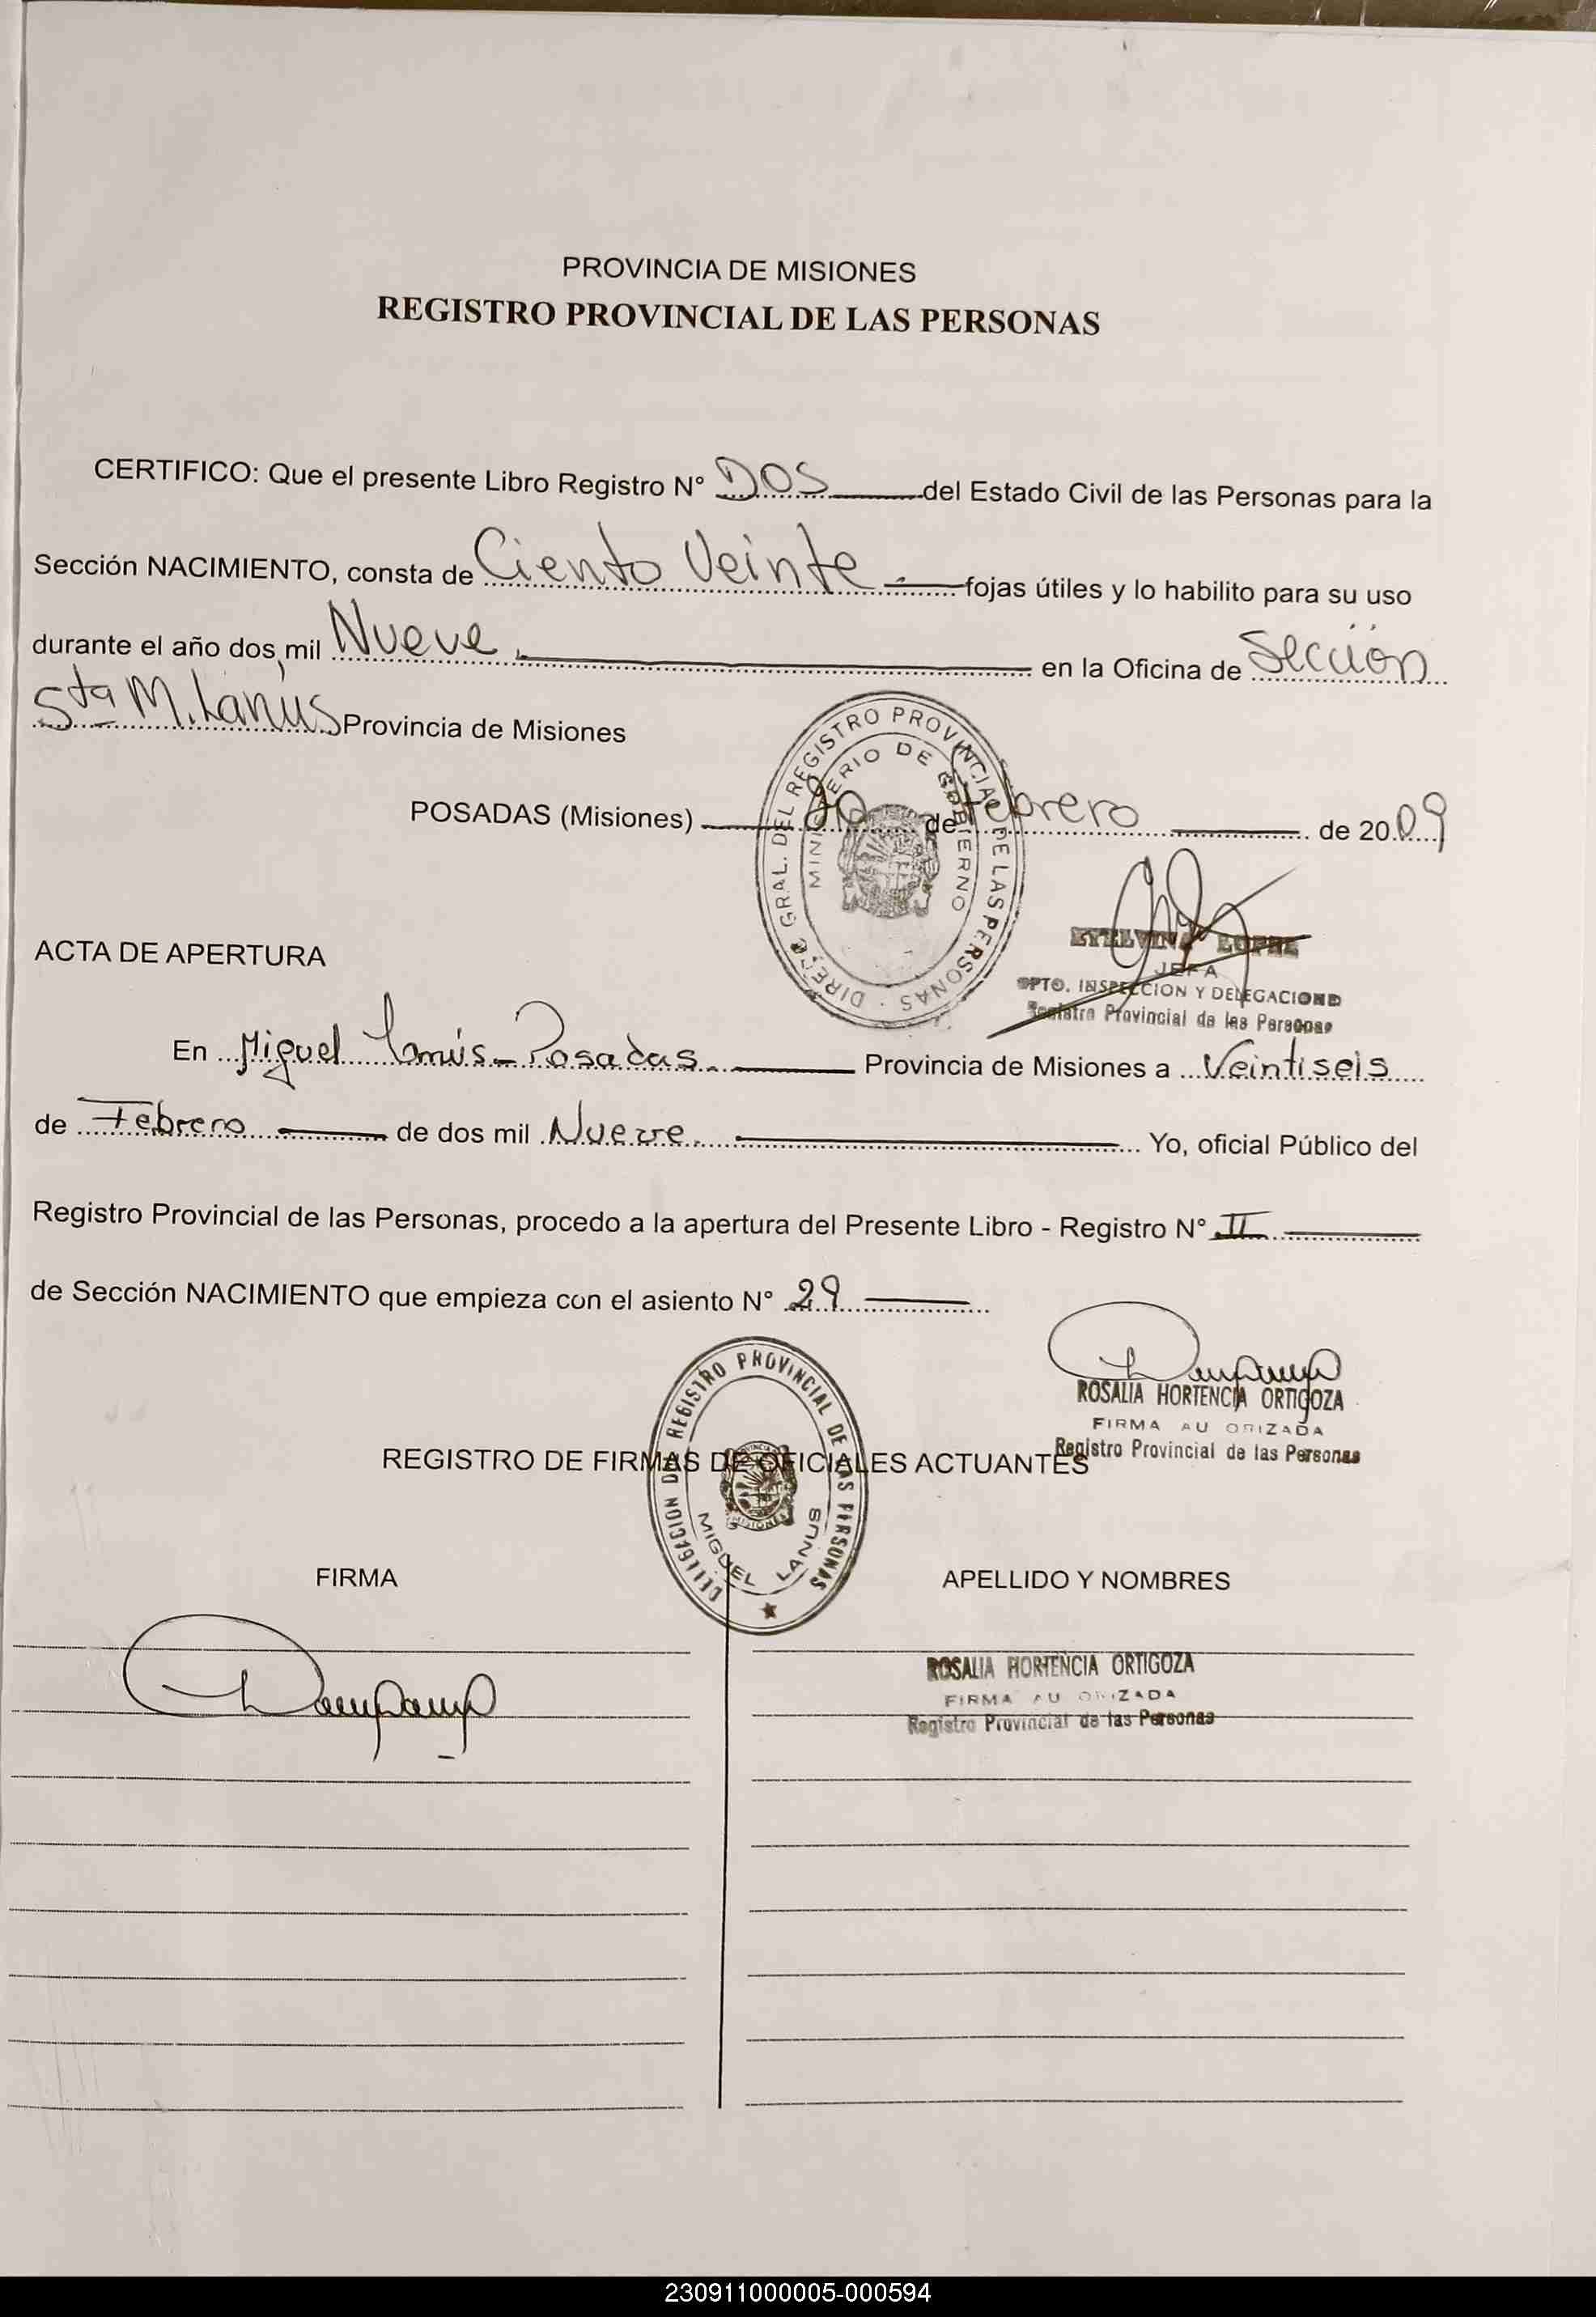 PROVINCIA DE MISIONES
REGISTRO PROVINCIAL DE LAS PERSONAS
CERTIFICO: Que el presente Libro Registro N° DOS del Estado Civil de las Personas para la
Sección NACIMIENTO, consta de Ciento Veinte fojas útiles y lo habilito para su uso
durante el año dos mil Nueve. en la Oficina de Sección
Sta M. Lanús Provincia de Misiones
POSADAS (Misiones) de Febrero de 2009
DIREC. GRAL. DEL REGISTRO PROVINCIAL DE LAS PERSONAS
MINISTERIO DE GOBIERNO
JEFA
DPTO. INSPECCION Y DELEGACIONES
Registro Provincial de las Personas
ACTA DE APERTURA
En Miguel Lanús - Posadas. Provincia de Misiones a Veintiseis
de Febrero de dos mil Nueve. Yo, oficial Público del
Registro Provincial de las Personas, procedo a la apertura del Presente Libro - Registro N° II
de Sección NACIMIENTO que empieza con el asiento N° 29
ROSALIA HORTENCIA ORTIGOZA
FIRMA AU ORIZADA
Registro Provincial de las Personas
DELEGACION DEL REGISTRO PROVINCIAL DE LAS PERSONAS
MIGUEL LANUS
REGISTRO DE FIRMAS DE OFICIALES ACTUANTES
FIRMA APELLIDO Y NOMBRES
ROSALIA HORTENCIA ORTIGOZA
FIRMA AU ORIZADA
Registro Provincial de las Personas
230911000005-000594